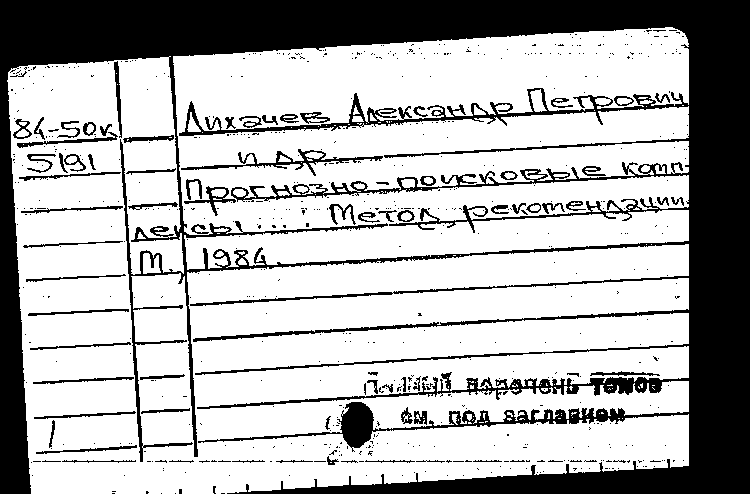 84-50к Лихачев, Александр Петрович
5191 и др.
Прогнозно-поисковые комп-
лексы ... : Метод. рекомендации.
М., 1984.
Полный перечень томов
см. под заглавием
1